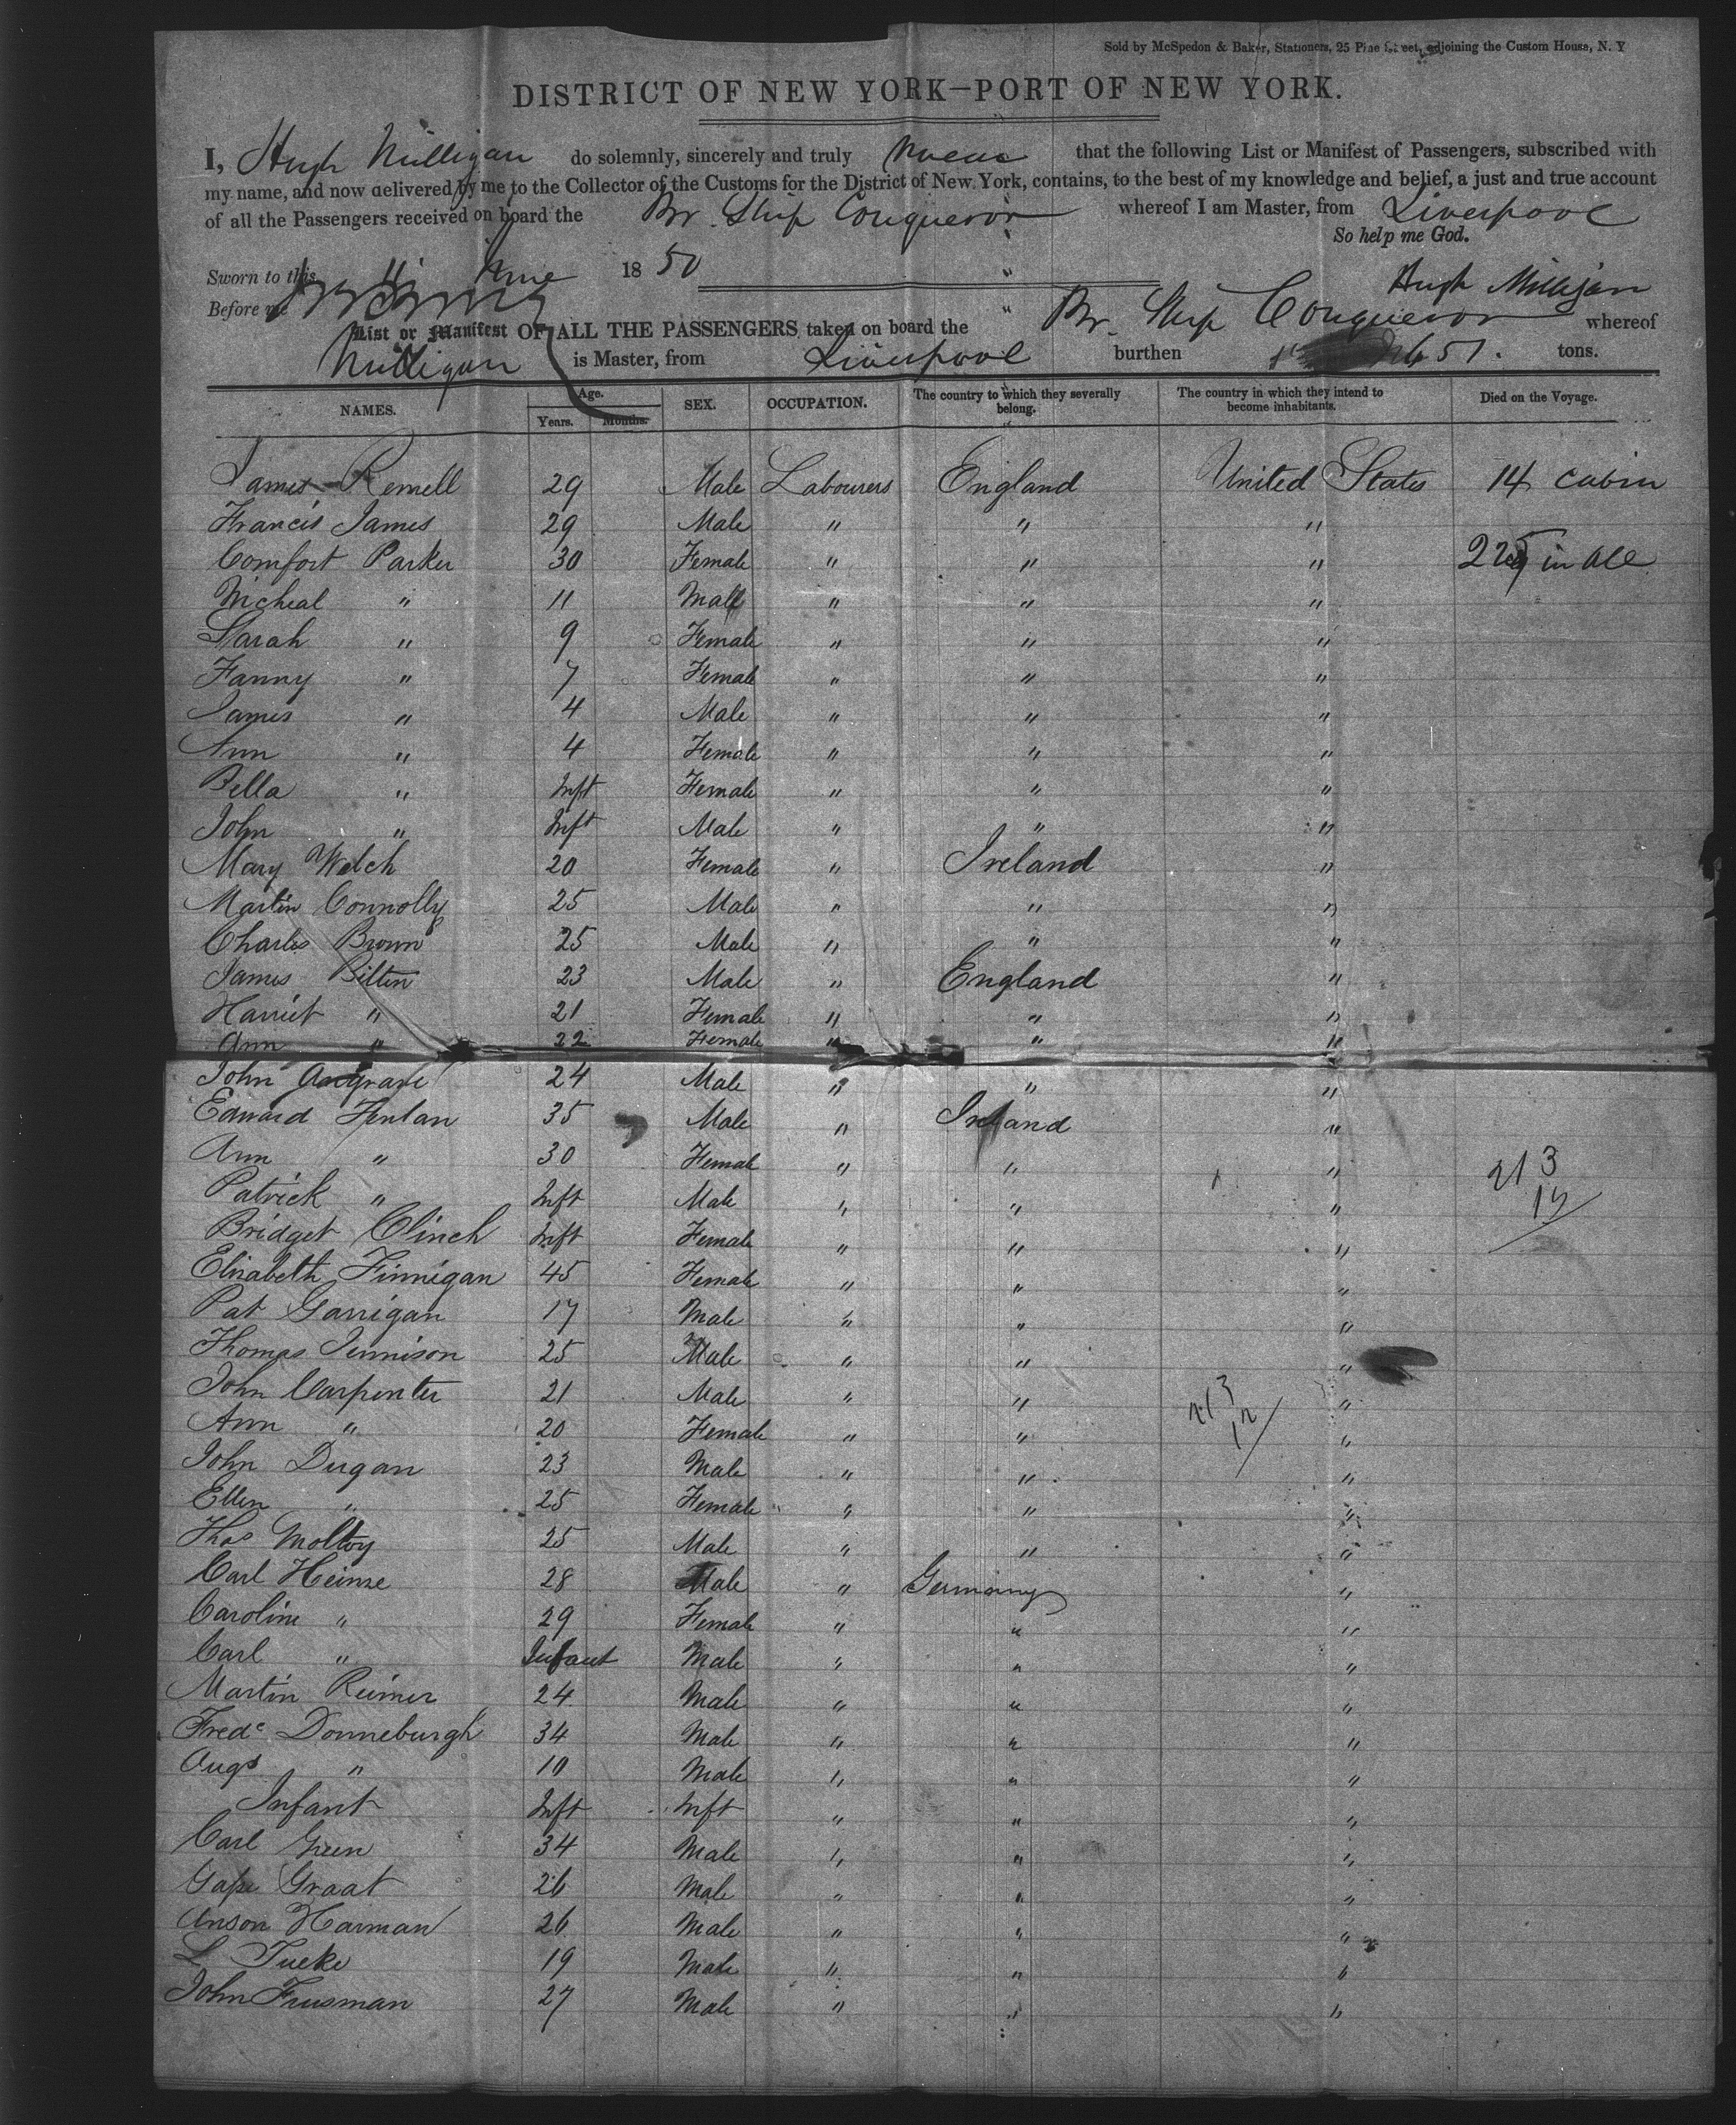 Sold by McSpedon & Baker, Stationers, 25 Pine Street, adjoining the Custom House, N. Y
DISTRICT OF NEW YORK—PORT OF NEW YORK.
I, Hugh Milligan do solemnly, sincerely and truly swear that the following List or Manifest of Passengers, subscribed with
my name, and now delivered by me to the Collector of the Customs for the District of New York, contains, to the best of my knowledge and belief, a just and true account
of all the Passengers received on board the Br. Ship Conqueror whereof I am Master, from Liverpool
So help me God.
Sworn to this June 1850
Hugh Milligan
Before me
List or Manifest OF ALL THE PASSENGERS taken on board the Br. Ship Conqueror whereof
Milligan is Master, from Liverpool burthen 651. tons.
NAMES. Age. Years. Months. SEX. OCCUPATION. The country to which they severally belong. The country in which they intend to become inhabitants. Died on the Voyage.
James Remell 29 Male Labourers England United States 14 cabin
Francis James 29 Male " " "
Comfort Parker 30 Female " " " 225 in all
Micheal " 11 Male " " "
Sarah " 9 Female " " "
Fanny " 7 Female " " "
James " 4 Male " " "
Ann " 4 Female " " "
Bella " Inft Female " " "
John " Inft Male " " "
Mary Welch 20 Female " Ireland "
Martin Connolly 25 Male " " "
Charles Brown 25 Male " " "
James Bilten 23 Male " England "
Harriet " 21 Female " " "
Ann " 22 Female " " "
John Angrave 24 Male " " "
Edward Fenlan 35 Male " Ireland "
Ann " 30 Female " " " 213
Patrick " Inft Male " " " 12
Bridget Clinch Inft Female " " "
Elizabeth Finnigan 45 Female " " "
Pat Garrigan 17 Male " " "
Thomas Jennison 25 Male " " "
John Carpenter 21 Male " " 213 "
Ann " 20 Female " " 12 "
John Dugan 23 Male " " "
Ellen " 25 Female " " "
Thos Molloy 25 Male " " "
Carl Heinze 28 Male " Germany "
Caroline " 29 Female " " "
Carl " Infant Male " " "
Martin Reimer 24 Male " " "
Fredc Donneburgh 34 Male " " "
Augs " 10 Male " " "
Infant Inft Inft " " "
Carl Green 34 Male " " "
Graat 26 Male " " "
Anson Harman 26 Male " " "
L Tueke 19 Male " " "
John Frusman 27 Male " " "